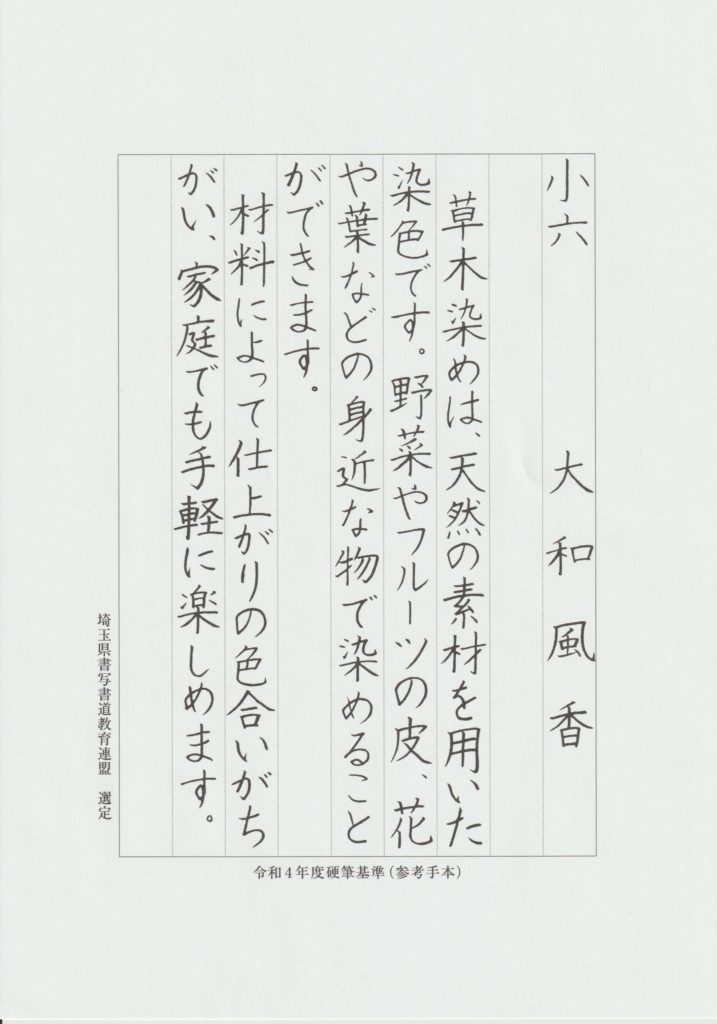 小六 大和風香
草木染めは、天然の素材を用いた
染色です。野菜やフルーツの皮、花
や葉などの身近な物で染めること
ができます。
材料によって仕上がりの色合いがち
がい、家庭でも手軽に楽しめます。
埼玉県書写書道教育連盟 選定
令和4年度硬筆基準(参考手本)